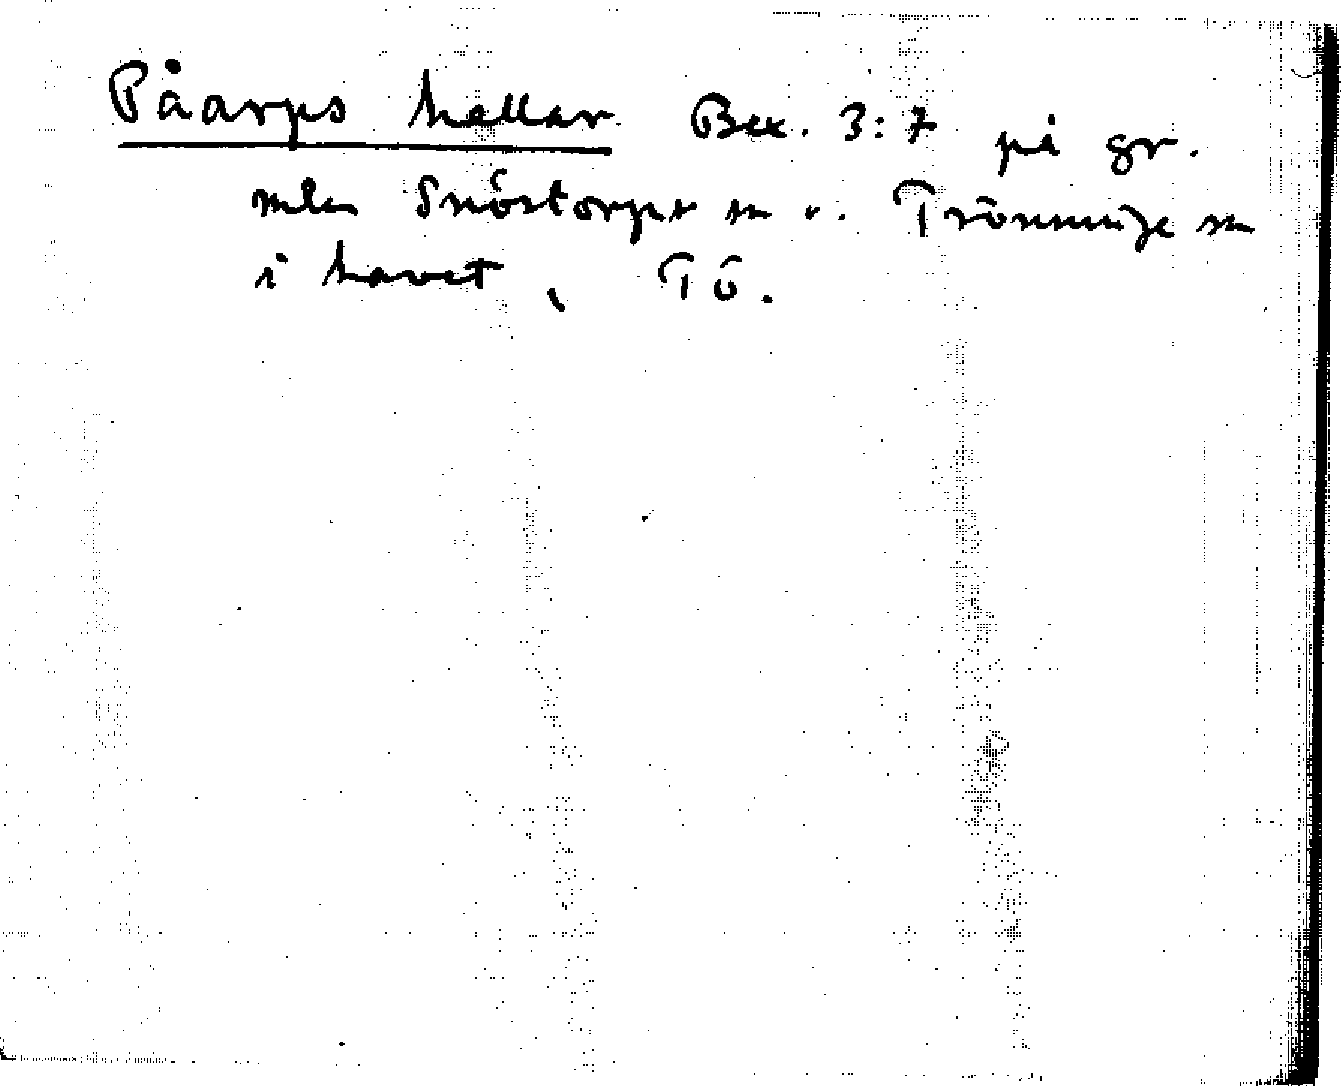 Påarps hallar Bec. 3:7 på gr.
mlan Snöstorps sn o. Trönninge sn
i havet, TÖ.